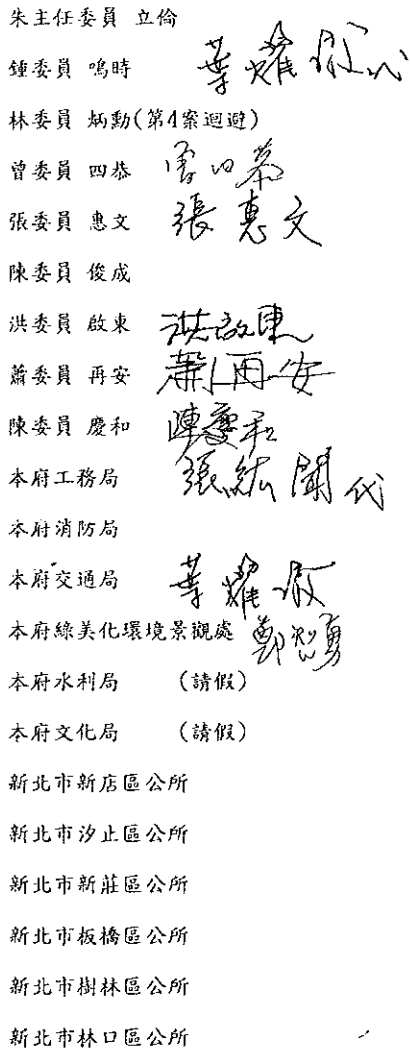 朱主任委員 立倫
鍾委員 鳴時 葉耀 代
林委員 炳勳(第4案迴避)
曾委員 四恭 曾四恭
張委員 惠文 張惠文
陳委員 俊成
洪委員 啟東 洪啟東
蕭委員 再安 蕭再安
陳委員 慶和 陳慶和
本府工務局 張紘聞 代
本府消防局
本府交通局 葉耀
本府綠美化環境景觀處 鄭 勇
本府水利局 (請假)
本府文化局 (請假)
新北市新店區公所
新北市汐止區公所
新北市新莊區公所
新北市板橋區公所
新北市樹林區公所
新北市林口區公所